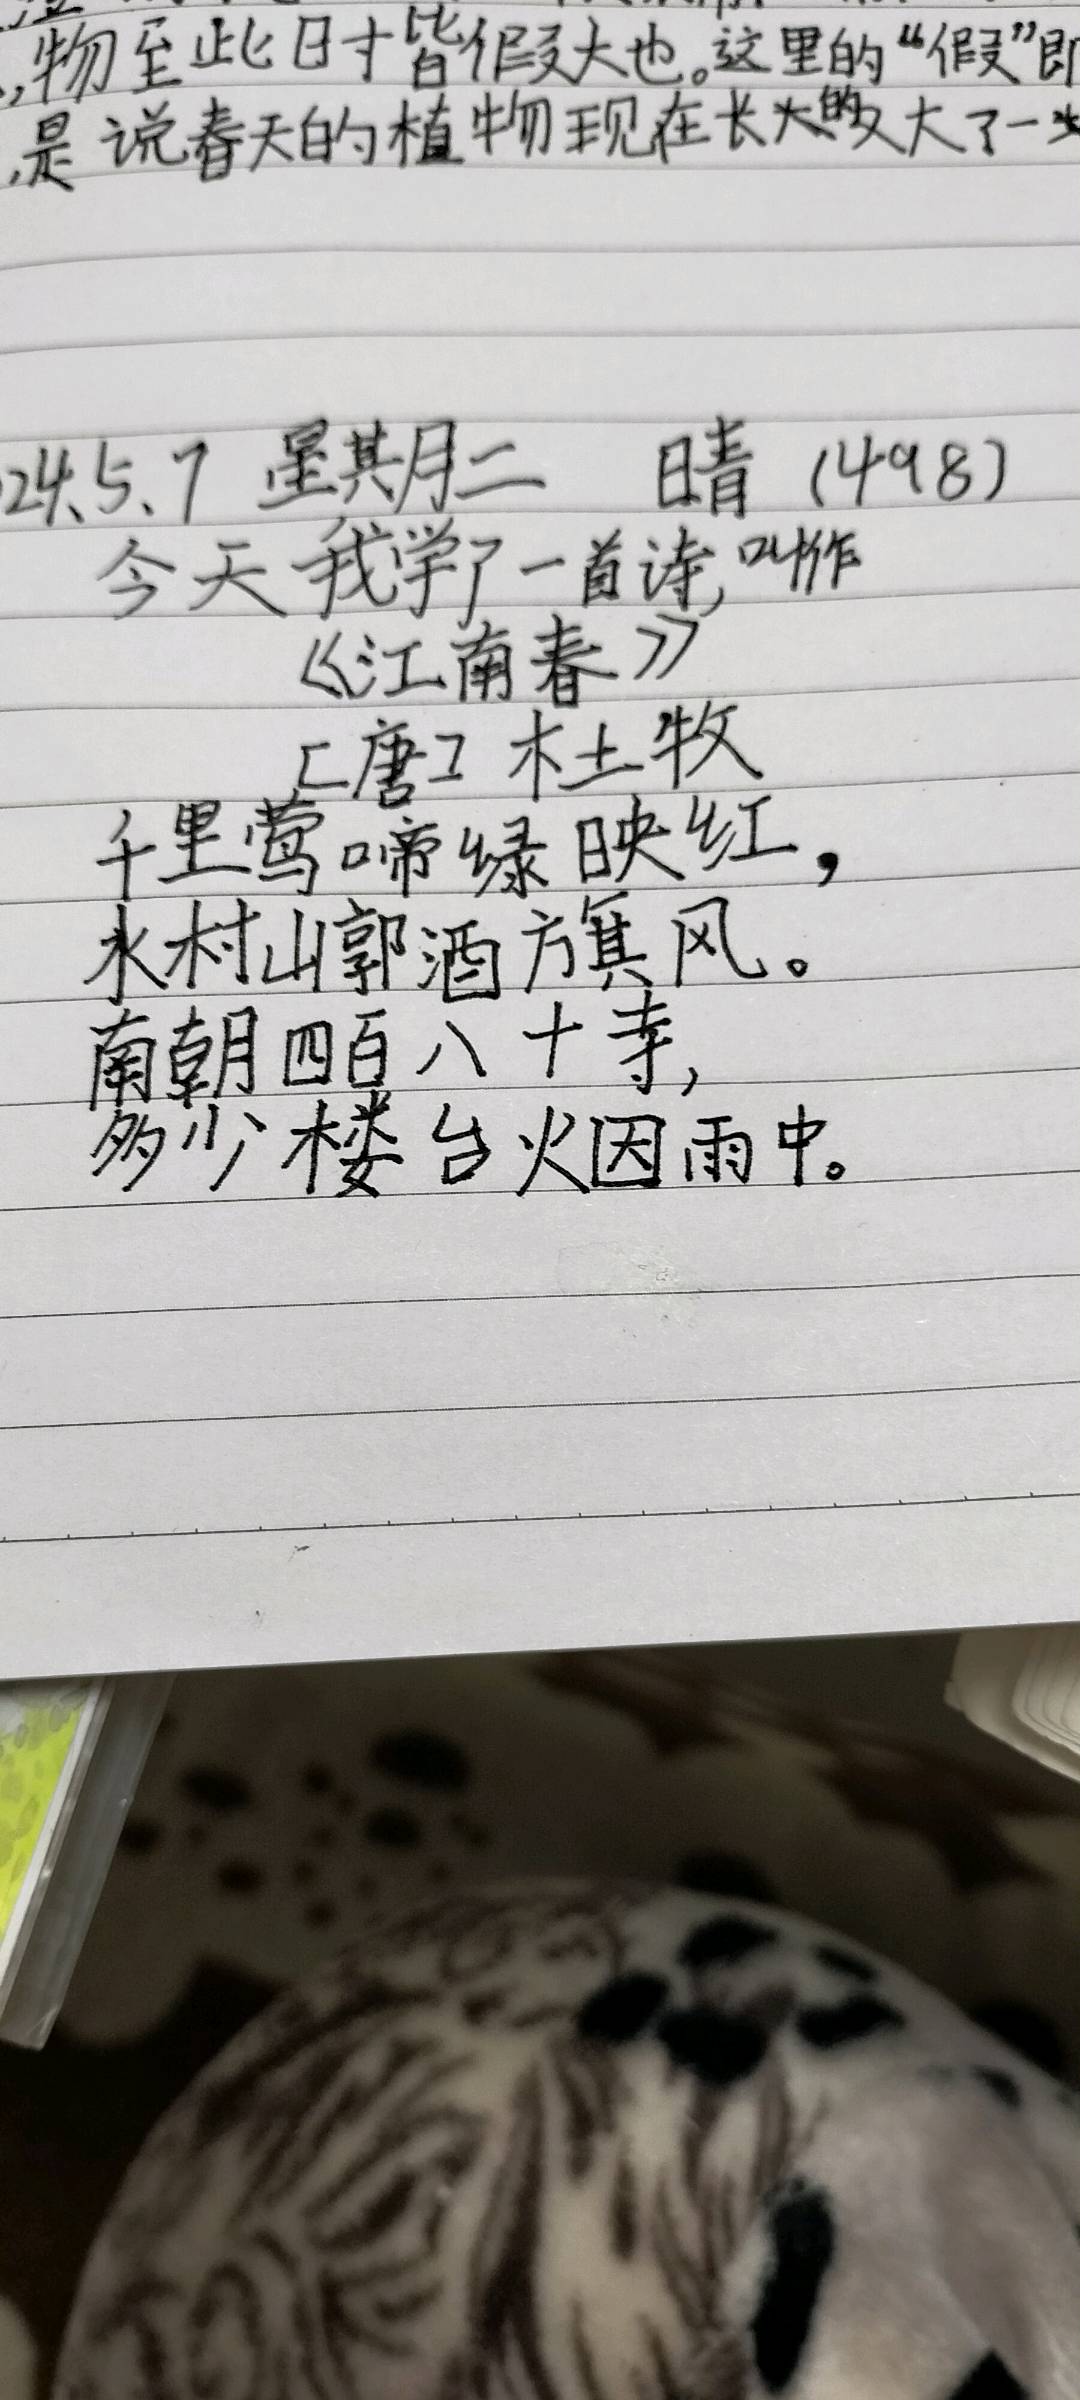 物至此时皆假大也。这里的“假”即
,是说春天的植物现在长大的又大了一
24.5.7 星期二 晴 (498)
今天我学了一首诗,叫作
《江南春》
[唐] 杜牧
千里莺啼绿映红,
水村山郭酒旗风。
南朝四百八十寺,
多少楼台烟雨中。